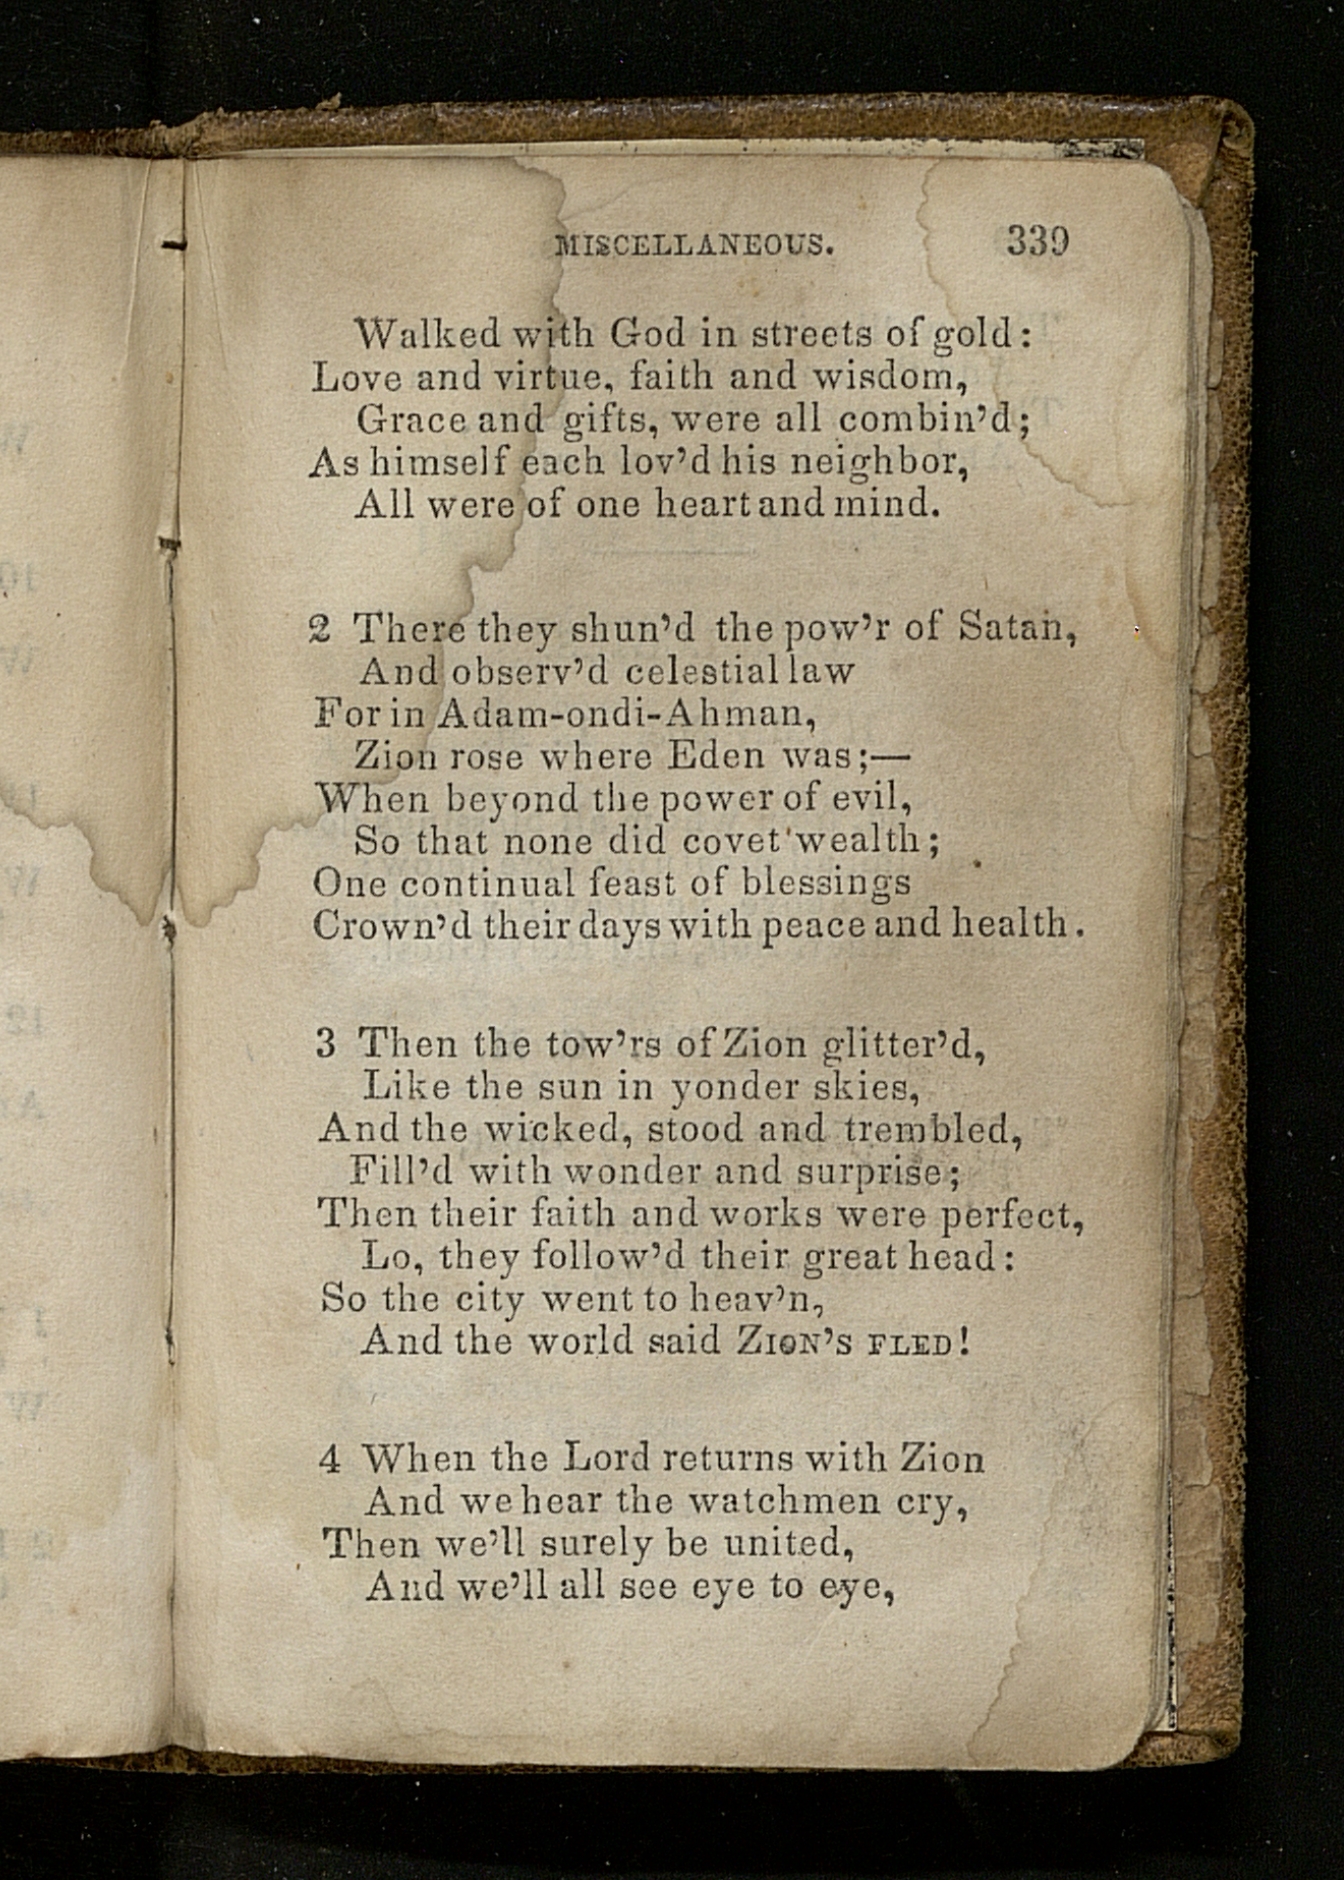 MISCELLANEOUS. 339
Walked with God in streets of gold:
Love and virtue, faith and wisdom,
Grace and gifts, were all combin'd;
As himself each lov'd his neighbor,
All were of one heart and mind.
2 There they shun'd the pow'r of Satan,
And observ'd celestial law
For in Adam-ondi-Ahman,
Zion rose where Eden was;—
When beyond the power of evil,
So that none did covet wealth;
One continual feast of blessings
Crown'd their days with peace and health.
3 Then the tow'rs of Zion glitter'd,
Like the sun in yonder skies,
And the wicked, stood and trembled,
Fill'd with wonder and surprise;
Then their faith and works were perfect,
Lo, they follow'd their great head:
So the city went to heav'n,
And the world said ZION'S FLED!
4 When the Lord returns with Zion
And we hear the watchmen cry,
Then we'll surely be united,
And we'll all see eye to eye,